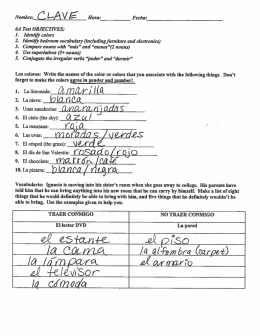 Nombre: CLAVE Hora: Fecha:
6A Test OBJECTIVES:
1. Identify colors
2. Identify bedroom vocabulary (including furniture and electronics)
3. Compare nouns with "más" and "menos" (2 nouns)
4. Use superlatives (3+ nouns)
5. Conjugate the irregular verbs "poder" and "dormir"
Los colores: Write the names of the color or colors that you associate with the following things. Don't
forget to make the colors agree in gender and number!
1. La limonada: amarilla
2. La nieve: blanca
3. Unas zanahorias: anaranjadas
4. El cielo (the sky): azul
5. La manzana: roja
6. Las uvas: moradas/verdes
7. El césped (the grass): verde
8. El día de San Valentín: rosado/rojo
9. El chocolate: marrón/café
10. La pizarra: blanca/negra
Vocabulario: Ignacio is moving into his sister's room when she goes away to college. His parents have
told him that he can bring anything into his new room that he can carry by himself. Make a list of eight
things that he would definitely be able to bring with him, and five things that he definitely wouldn't be
able to bring. Use the examples given to help you.
TRAER CONMIGO NO TRAER CONMIGO
El lector DVD La pared
el estante el piso
la cama la alfombra (carpet)
la lámpara el armario
el televisor
la cómoda